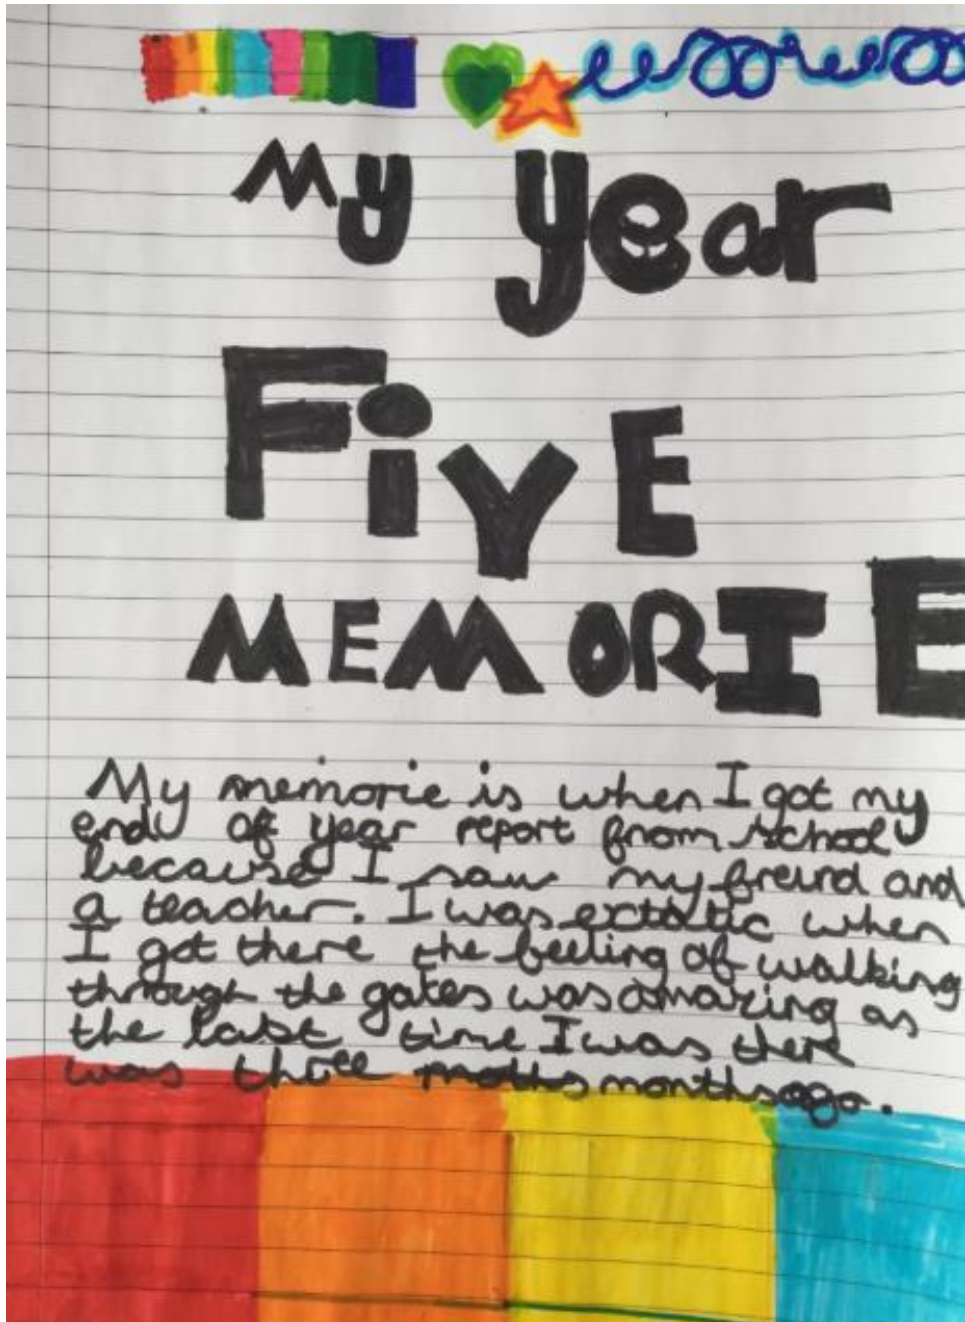 My year
FiVE
MEMORIE
My memorie is when I got my
end of year report from school
because I saw my freind and
a teacher. I was extatic when
I got there the feeling of walking
through the gates was amazing as
the last time I was there
was three moths months ago.